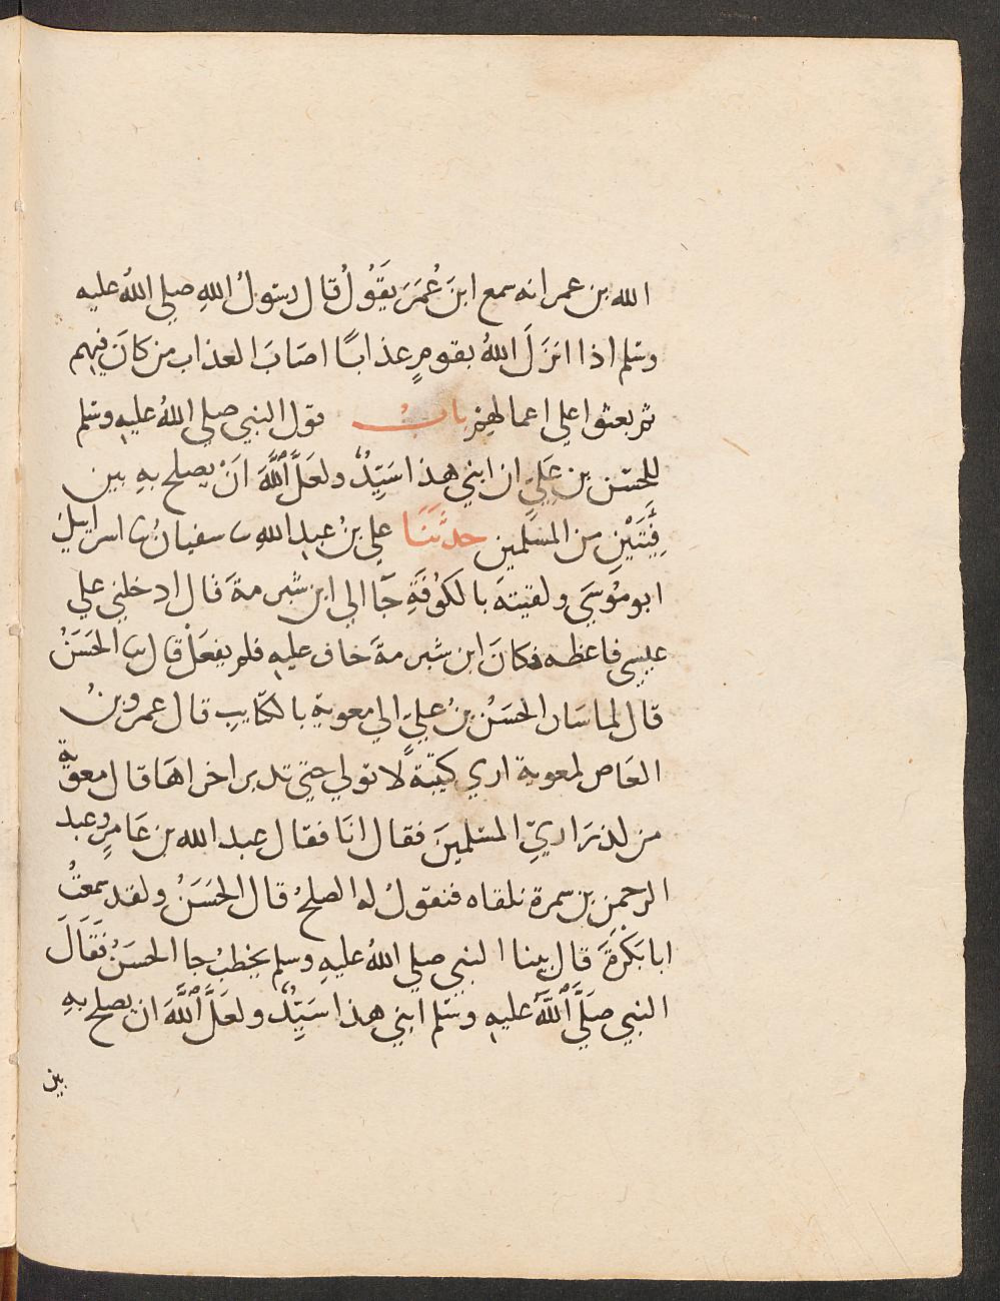 الله بن عمر انه سمع ابنَ عُمَرَ يَقُولُ قال رسولُ اللهِ صلي اللهُ عليه
وسلم اذا انزَلَ اللهُ بقومٍ عذابًا اصَابَ العذاب من كانَ فيهم
ثم بعثوا علي اعمالهم بابُ قول النبي صلي اللهُ عليه وسلم
للحسن بن عَلِيٍّ ان ابني هذا سَيِّدٌ ولعَلَّ اللَّهَ انْ يصلح بهِ بين
فِئَتَيْنِ من المسلمين حدثَنَا علي بنُ عبد اللهِ سفيانُ اسراييل
ابو مُوسَي ولقيتهُ بالكُوفَةِ جَا الي ابن شبرمةَ فَال ادخلني علي
عيسي فاعظه فكانَ ابن شبرمةَ خاف عليه فلم يفعَلْ قال الحَسَنُ
قال لما سَار الحَسَنُ بنُ عليٍّ الي معوية بالكتايبِ قال عمرو بنُ
العَاص لمعوية اري كتيبةً لا تولي حتي تدبر اخراهَا قال معوية
من لذرَاريِّ المسلمينَ فقال انَا فقال عبد الله بن عَامرٍ وعبد
الرحمن بن سمرة نلقاه فنقولُ له الصلحُ قال الحَسَنُ ولقد سمعتُ
ابا بَكْرَةَ قال بينا النبي صلي اللهُ عليهِ وسلم يخطبُ جا الحسَنُ فَقَالَ
النبي صَلَّي اللَّهُ عليه وسلم ابني هذا سَيِّدٌ ولعَلَّ اللَّهَ ان يصلح بهِ
بين